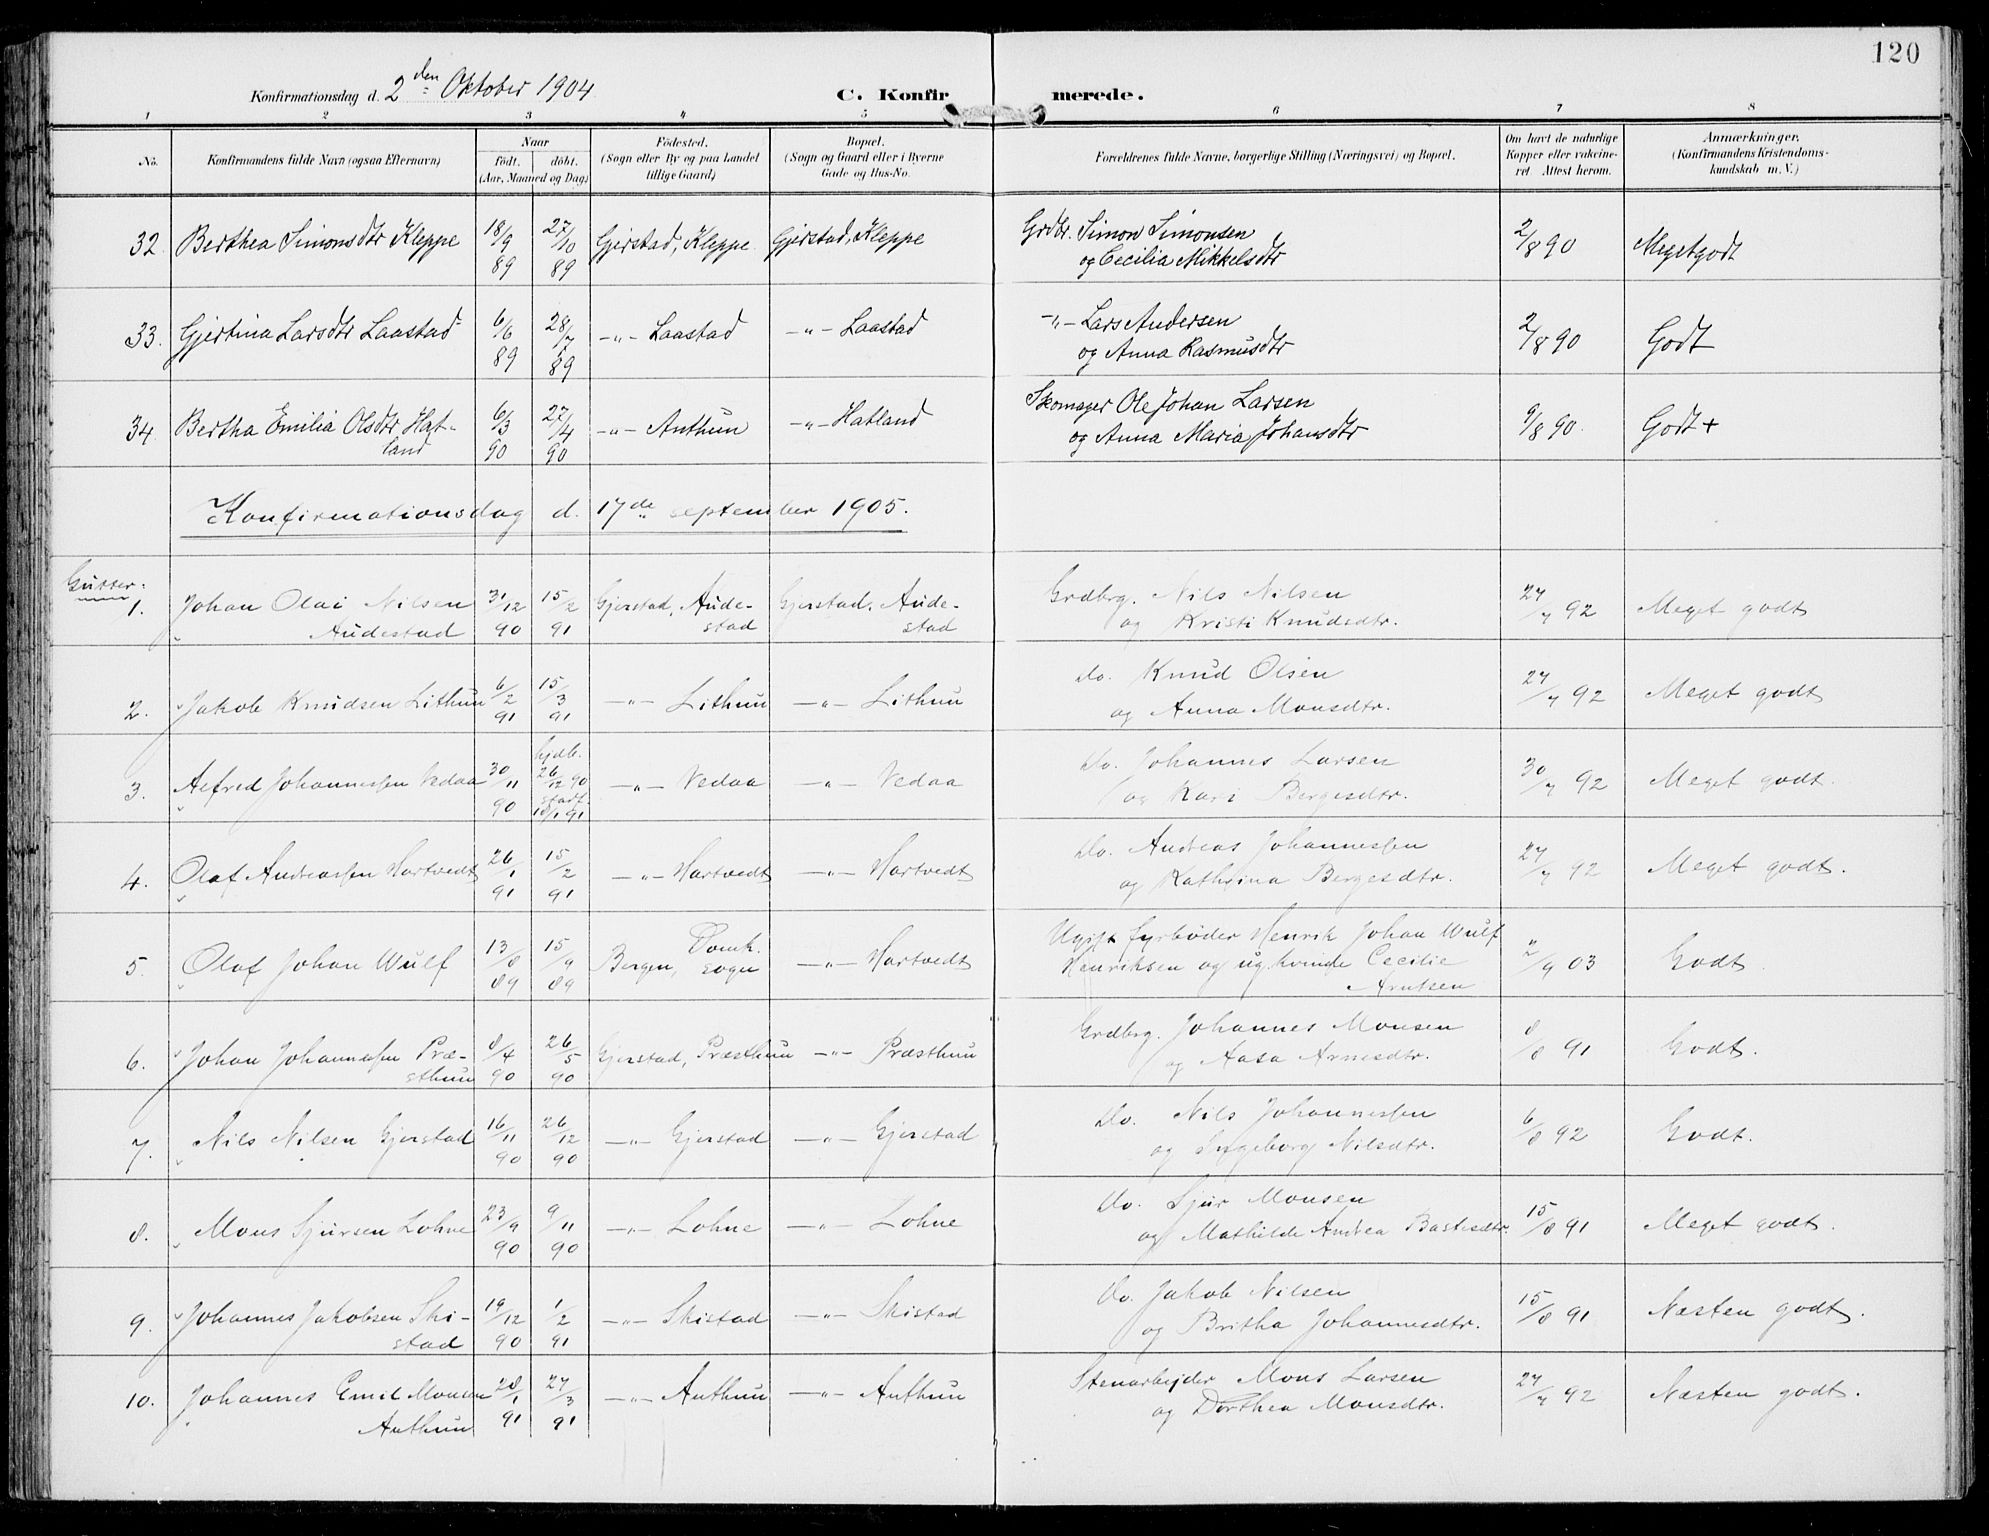 120
Konfirmationsdag d. 2den Oktober 1904
C. Konfirmerede.
1 2 3 4 5 6 7 8
No. Konfirmandens fulde Navn (ogsaa Efternavn) Naar født. døbt. (Aar, Maaned og Dag) Fødested. (Sogn eller By og paa Landet tillige Gaard) Bopæl. (Sogn og Gaard eller i Byerne Gade og Hus-No. Forældrenes fulde Navne, borgerlige Stilling (Næringsvei) og Bopæl. Om havt de naturlige Kopper eller vakcineret Attest herom. Anmærkninger. (Konfirmandens Kristendomskundskab m. V.)
32. Berthea Simonsdtr Kleppe 18/9 89 27/10 89 Gjerstad, Kleppe Gjerstad, Kleppe Grdbr. Simon Simonsen og Cecilia Mikkelsdtr 2/8 90 Megetgodt
33. Gjertina Larsdtr Laastad 6/6 89 28/7 89 -"- Laastad -"- Laastad -"- Lars Andersen og Anna Rasmusdtr 2/8 90 Godt
34. Bertha Emilia Olsdtr Hatland 6/3 90 27/4 90 -"- Anthun -"- Hatland Skomager Ole Johan Larsen og Anna Maria Johansdtr 9/8 90 Godt +
Konfirmationsdag d. 17de september 1905.
Gutter:
1. Johan Olai Nilsen Audestad 31/12 90 15/2 91 Gjerstad, Audestad Gjerstad, Audestad Grdbrg. Nils Nilsen og Kristi Knudsdtr. 27/7 92 Meget godt
2. Jakob Knudsen Lithun 6/2 91 15/3 91 -"- Lithun -"- Lithun Do. Knud Olsen og Anna Monsdtr. 27/7 92 Meget godt
3. Alfred Johannessen Vedaa 30/11 90 hjdb. 26/12 90 stadf. 18/1 91 -"- Vedaa -"- Vedaa Do. Johannes Larsen og Kari Bergesdtr. 30/7 92 Meget godt.
4. Olaf Andreassen Hartvedt 26/1 91 15/2 91 -"- Hartvedt -"- Hartvedt Do. Andreas Johannessen og Kathrina Bergesdtr. 27/7 92 Meget godt.
5. Olaf Johan Wulf 13/8 89 15/9 89 Bergen, Domk. sogn -"- Hartvedt Ugift fyrbøder Henrik Johan Wulf Henriksen og ug. kvinde Cecilie Arntsen 2/9 03 Godt
6. Johan Johannessen Præsthun 8/4 90 26/5 90 Gjerstad, Præsthun -"- Præsthun Grdbrg. Johannes Monsen og Aasa Arnesdtr. 8/8 91 Godt.
7. Nils Nilsen Gjerstad 16/11 90 26/12 90 -"- Gjerstad -"- Gjerstad Do. Nils Johannessen og Ingeborg Nilsdtr. 6/8 92 Godt.
8. Mons Sjursen Lohne 23/9 90 9/11 90 -"- Lohne -"- Lohne Do. Sjur Monsen og Mathilde Andrea Bastesdtr. 15/8 91 Meget godt.
9. Johannes Jakobsen Skistad 19/12 90 1/2 91 -"- Skistad -"- Skistad Do. Jakob Nilsen og Britha Johannesdtr. 15/8 91 Næsten godt.
10. Johannes Emil Monsen Anthun 28/1 91 27/3 91 -"- Anthun -"- Anthun Stenarbejder Mons Larsen og Dorthea Monsdtr. 27/7 92 Næsten godt.